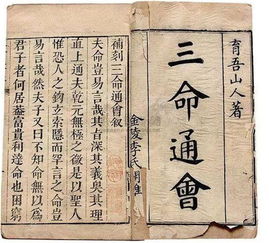 育吾山人著
三命通會
補刻三命通會叙
夫命豈易言哉其旨深其義奥其理
直上通夫乾元無極之後是以聖人
惟恐人之鈎玄索隱而罕言之命豈
易言哉然夫子又曰不知命無以爲
君子者何居蓋富貴利達命也困窮